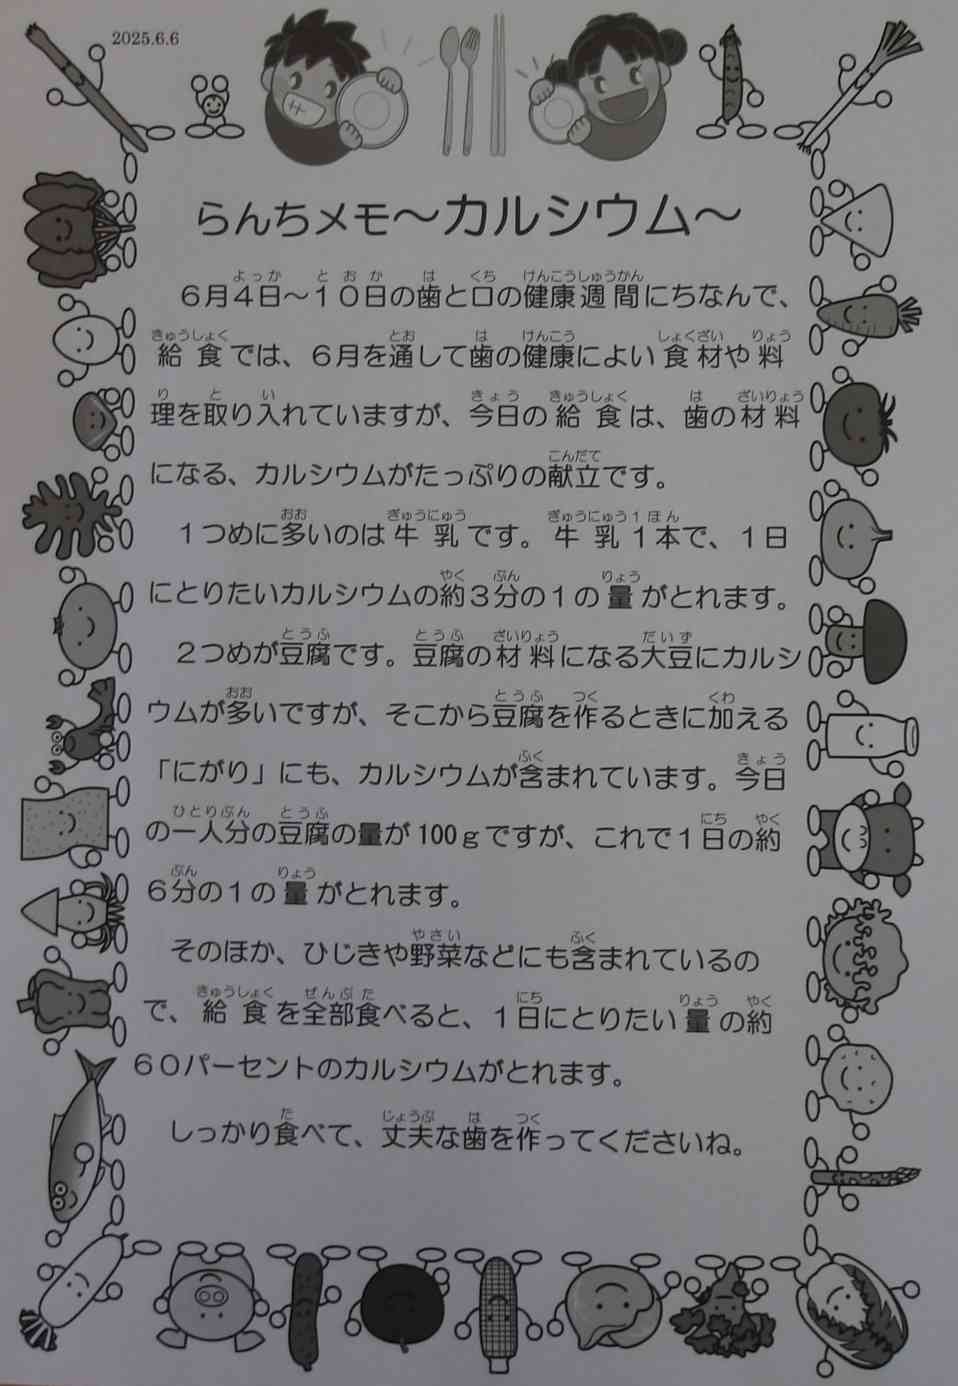 2025.6.6
らんちメモ～カルシウム～
６月４日～１０日の歯と口の健康週間にちなんで、
給食では、６月を通して歯の健康によい食材や料
理を取り入れていますが、今日の給食は、歯の材料
になる、カルシウムがたっぷりの献立です。
１つめに多いのは牛乳です。牛乳１本で、１日
にとりたいカルシウムの約３分の１の量がとれます。
２つめが豆腐です。豆腐の材料になる大豆にカルシ
ウムが多いですが、そこから豆腐を作るときに加える
「にがり」にも、カルシウムが含まれています。今日
の一人分の豆腐の量が100ｇですが、これで１日の約
６分の１の量がとれます。
そのほか、ひじきや野菜などにも含まれているの
で、給食を全部食べると、１日にとりたい量の約
６０パーセントのカルシウムがとれます。
しっかり食べて、丈夫な歯を作ってくださいね。